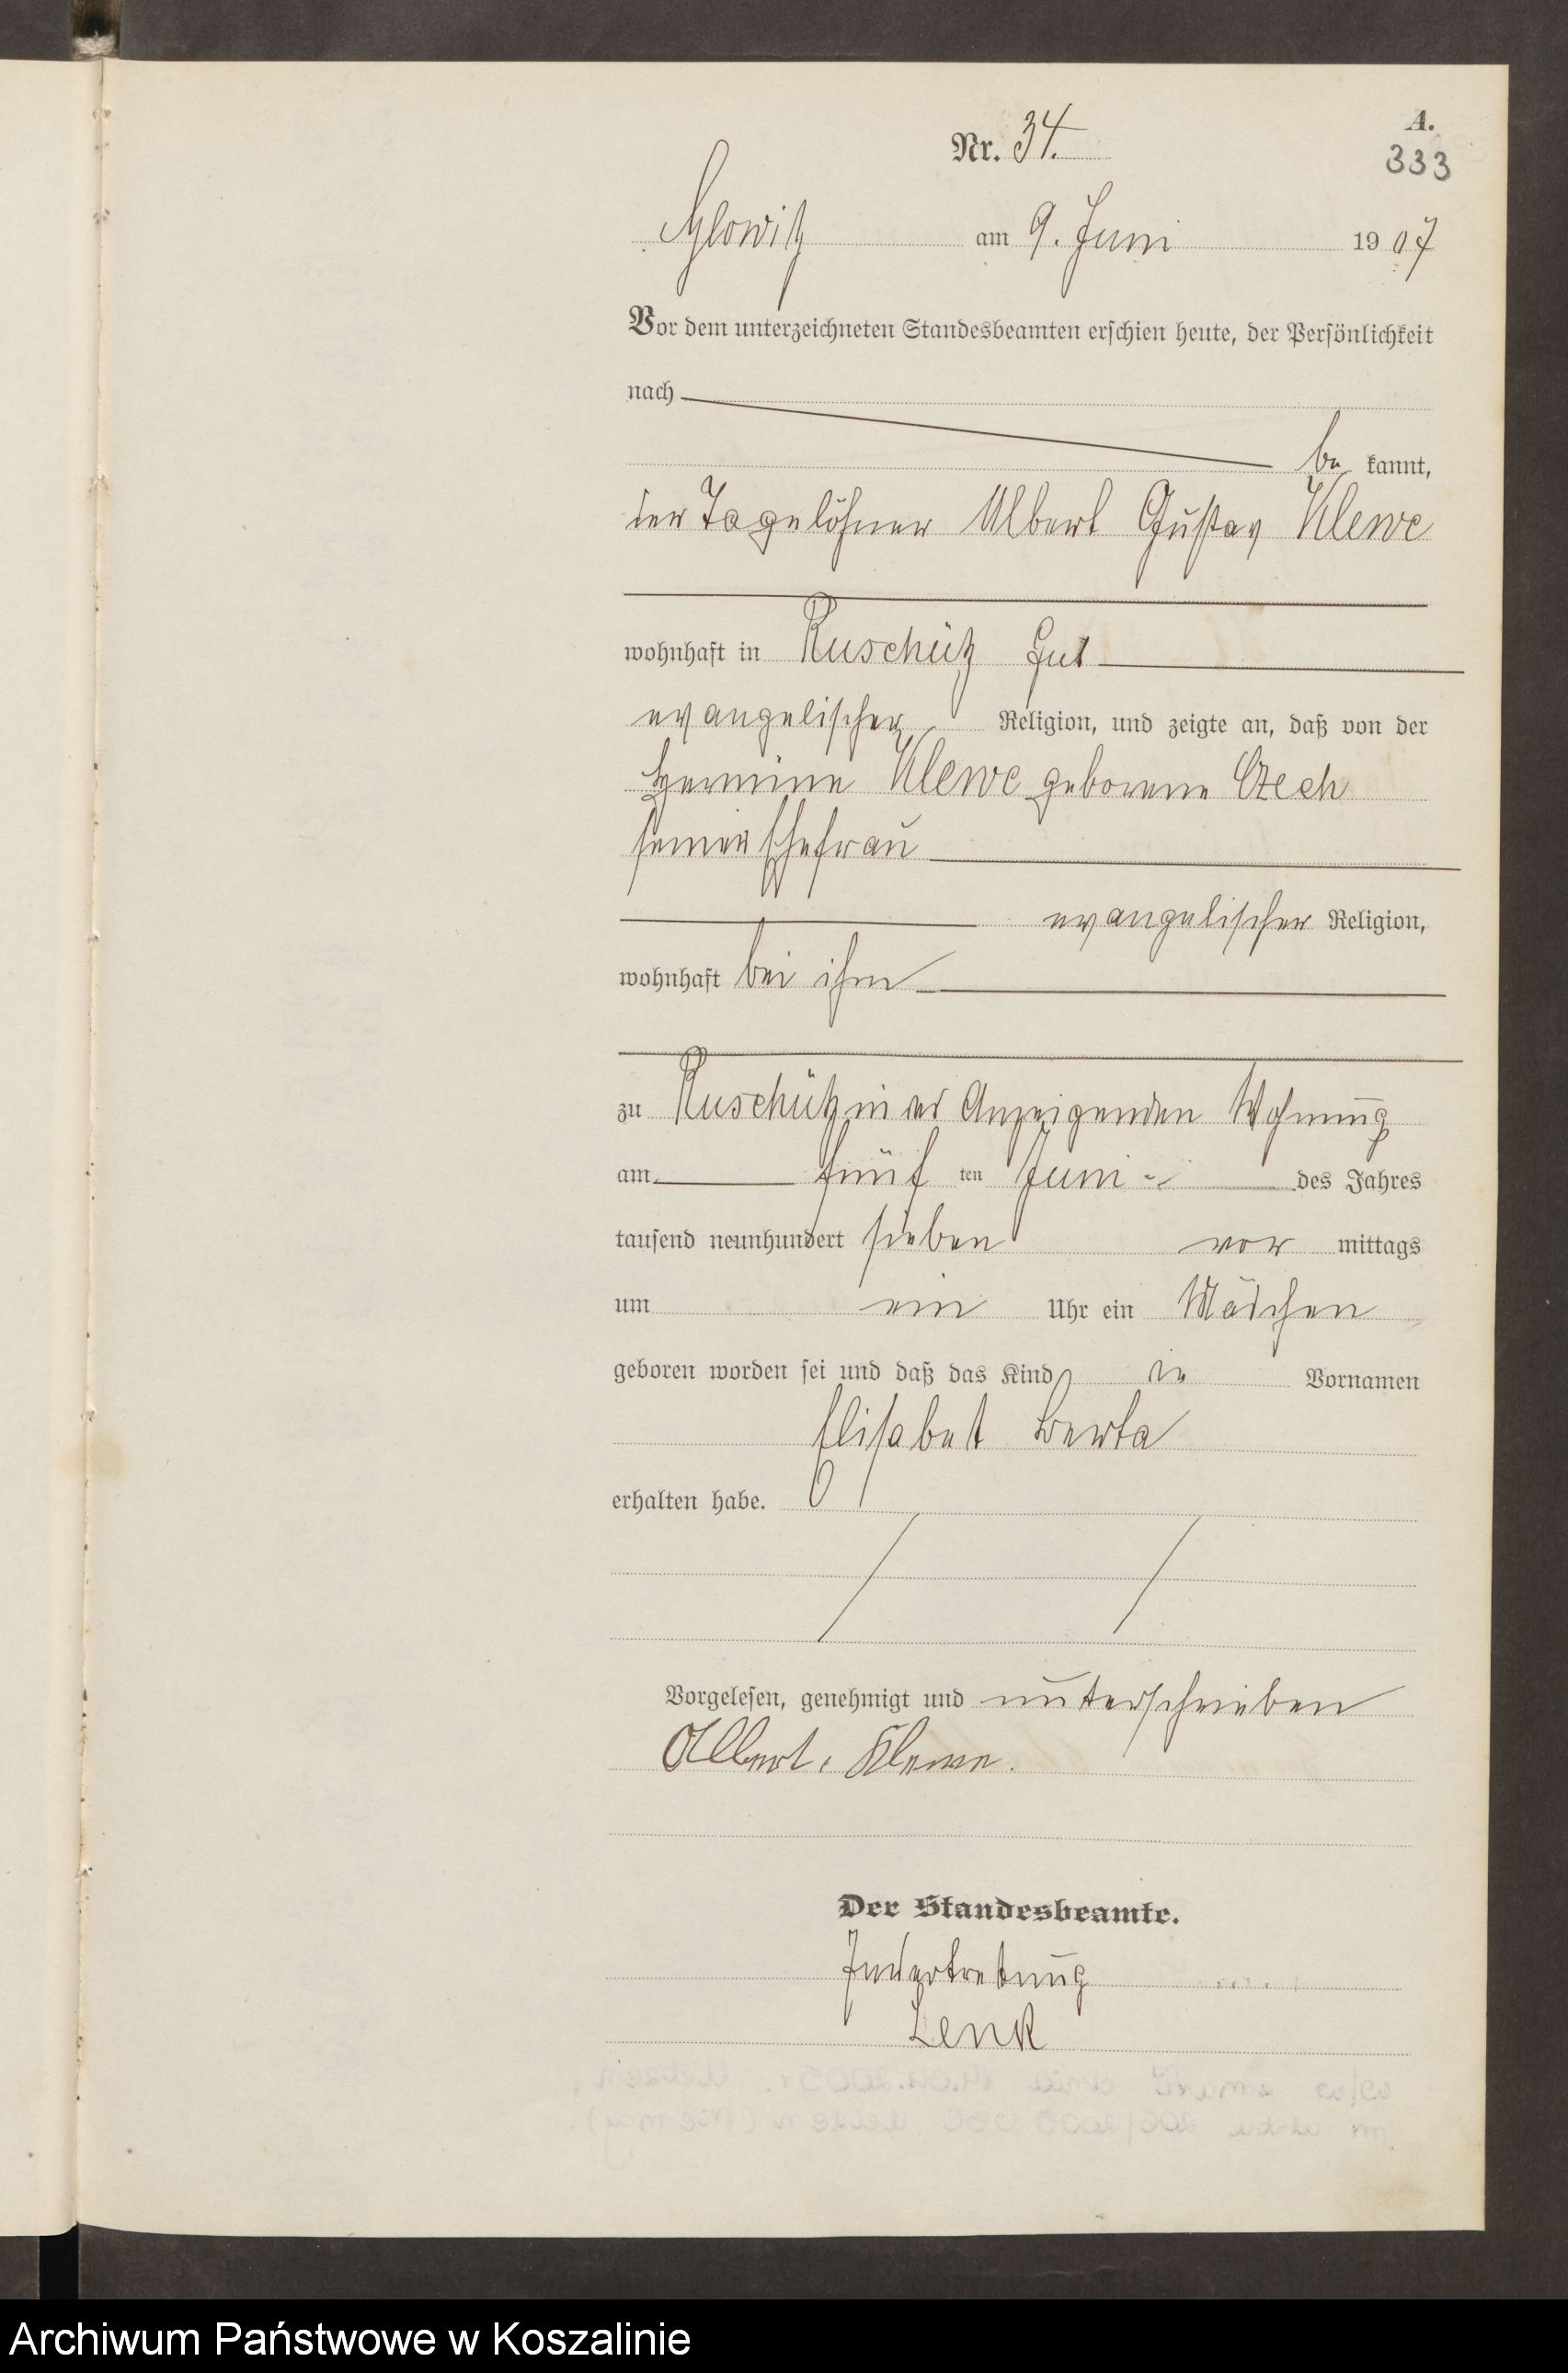 A.
Nr. 34.
333
Glowitz am 9. Juni 1907
Vor dem unterzeichneten Standesbeamten erschien heute, der Persönlichkeit
nach
be kannt,
der Tagelöhner Albert Gustav Klewe
wohnhaft in Ruschütz Gut
evangelischer Religion, und zeigte an, daß von der
Hermine Klewe geborene Czech
seiner Ehefrau
evangelischer Religion,
wohnhaft bei ihm
zu Ruschütz in des Anzeigenden Wohnung
am fünf ten Juni des Jahres
tausend neunhundert sieben vor mittags
um ein Uhr ein Mädchen
geboren worden sei und daß das Kind die Vornamen
Elisabet Berta
erhalten habe.
Vorgelesen, genehmigt und unterschrieben
Albert Klewe.
Der Standesbeamte.
In Vertretung
Lenk
Archiwum Państwowe w Koszalinie